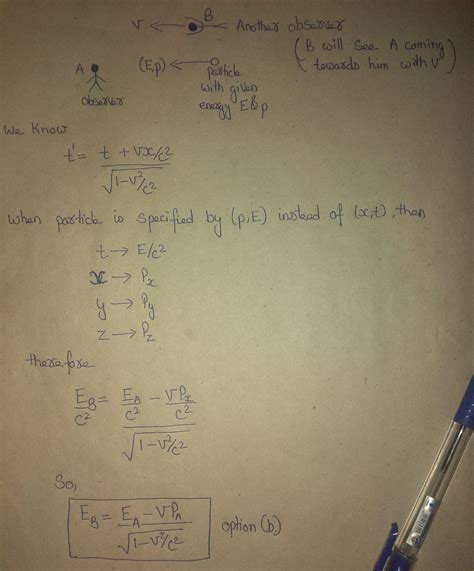 V ← B Another observer
(B will see A coming towards him with V)
A
observer
(E,p) ← particle
with given
energy E & p.
We know
t' = (t + Vx/c²) / √(1-v²/c²)
When particle is specified by (p,E) instead of (x,t), then
t → E/c²
x → Px
y → Py
z → Pz
therefore
E_B/c² = (E_A/c² - VPx/c²) / √(1-v²/c²)
So,
E_B = (E_A - VP_A) / √(1-v²/c²) option (b)